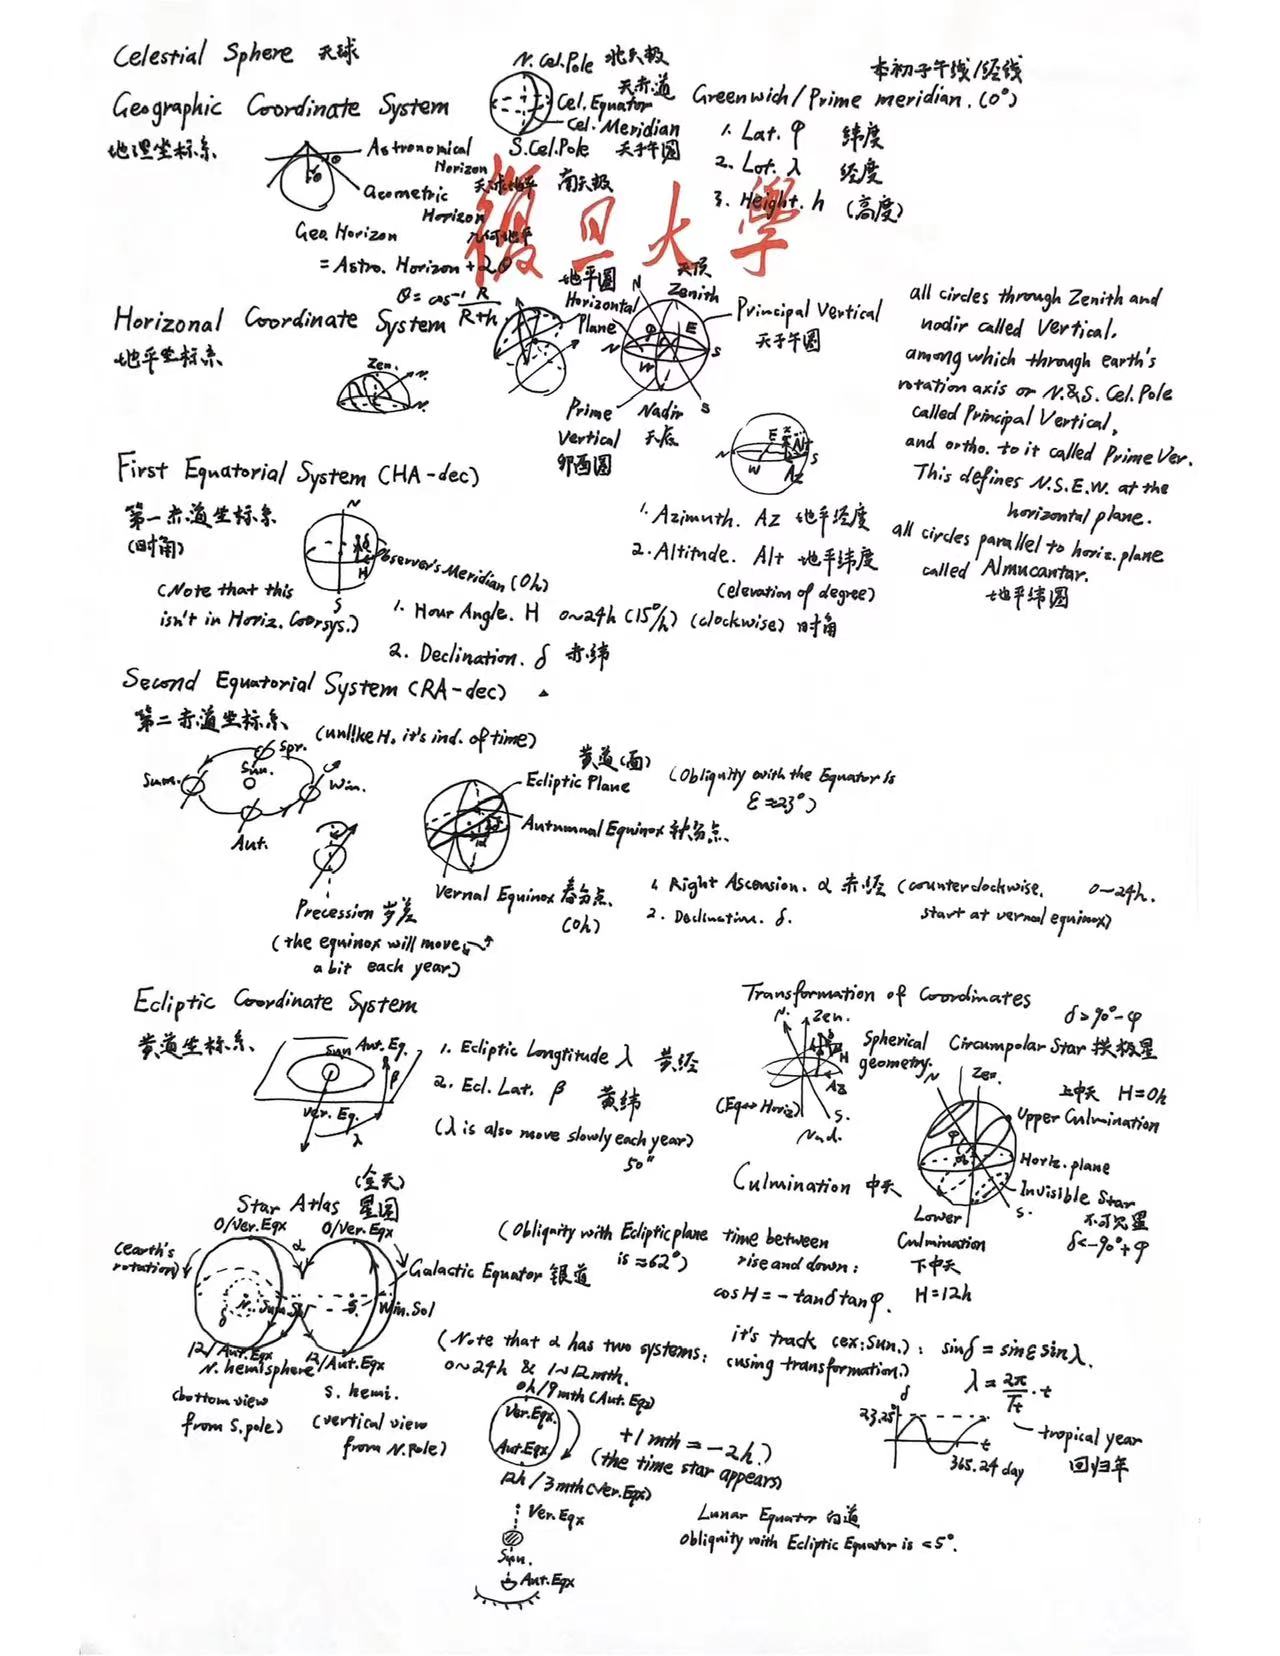 Celestial Sphere 天球
N. Cel. Pole 北天极
天赤道
Cel. Equator
Cel. Meridian
S. Cel. Pole 天子午圆
南天极
本初子午线/经线
Greenwich/Prime meridian. (0°)
1. Lat. φ 纬度
2. Lot. λ 经度
3. Height. h (高度)
Geographic Coordinate System
地理坐标系
Astronomical
Horizon
天球地平
Geometric
Horizon
几何地平
Geo. Horizon
= Astro. Horizon + 2θ
θ = cos⁻¹ R/(R+h)
復旦大學
Horizonal Coordinate System
地平坐标系
Zen.
地平圆
Horizontal
Plane
N
天顶
Zenith
Principal Vertical
天子午圆
E
N
S
W
Prime
Vertical
卯酉圆
Nadir
天底
S
N
E
W
S
Alt
Az
all circles through Zenith and
nadir called Vertical.
among which through earth's
rotation axis or N.&S. Cel. Pole
called Principal Vertical,
and ortho. to it called Prime Ver.
This defines N.S.E.W. at the
horizontal plane.
all circles parallel to horiz. plane
called Almucantar.
地平纬圆
1. Azimuth. Az 地平经度
2. Altitude. Alt 地平纬度
(elevation of degree)
First Equatorial System (HA-dec)
第一赤道坐标系
(时角)
N
δ
H
S
Observer's Meridian (0h)
(Note that this
isn't in Horiz. Coorsys.)
1. Hour Angle. H 0~24h (15°/h) (clockwise) 时角
2. Declination. δ 赤纬
Second Equatorial System (RA-dec)
第二赤道坐标系
(unlike H. it's ind. of time)
Spr.
Sum.
Sun.
Win.
Aut.
黄道(面)
Ecliptic Plane
(Obliquity with the Equator is
ε≈23°)
Autumnal Equinox 秋分点
Vernal Equinox 春分点
(0h)
Precession 岁差
(the equinox will move
a bit each year)
1. Right Ascension. α 赤经 (counterclockwise. 0~24h.
start at vernal equinox)
2. Declination. δ.
Ecliptic Coordinate System
黄道坐标系
Sun
Aut. Eq.
β
Ver. Eq.
λ
1. Ecliptic Longtitude λ 黄经
2. Ecl. Lat. β 黄纬
(λ is also move slowly each year)
50"
Transformation of Coordinates
N.
Zen.
H
Az
S.
Nad.
(Eq↔Horiz)
Spherical
geometry.
δ>90°-φ
Circumpolar Star 拱极星
上中天 H=0h
Upper Culmination
N
Zen.
φ
Horiz. plane
Invisible Star
不可见星
δ<-90°+φ
S.
Lower
Culmination
下中天
H=12h
Culmination 中天
time between
rise and down:
cosH = -tanδtanφ.
it's track (ex: Sun.): sinδ = sinε sinλ.
(using transformation.)
λ = 2π/Tt · t
δ
23.25°
t
365.24 day
tropical year
回归年
(全天)
Star Atlas 星图
0/Ver. Eqx
0/Ver. Eqx
(earth's
rotation)
α
δ
N.
S.
Win. Sol
Galactic Equator 银道
(Obliquity with Ecliptic plane
is ≈62°)
12/Aut. Eqx
12/Aut. Eqx
N. hemisphere
(bottom view
from S. pole)
S. hemi.
(vertical view
from N. Pole)
(Note that α has two systems:
0~24h & 1~12mth.
0h/9mth (Aut. Eqx)
Ver. Eqx.
Aut. Eqx
12h/3mth (Ver. Eqx)
+1mth = -2h.)
(the time star appears)
Ver. Eqx
Sun.
Aut. Eqx
Lunar Equator 白道
Obliquity with Ecliptic Equator is <5°.